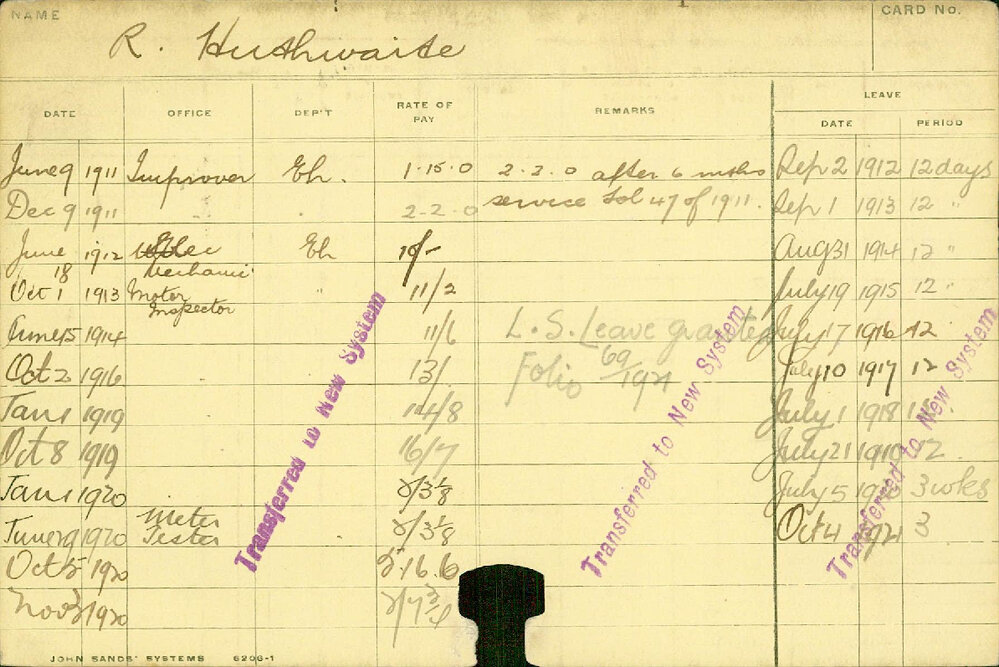 NAME
CARD No.
R. Huthwaite
DATE OFFICE DEP'T RATE OF PAY REMARKS LEAVE
DATE PERIOD
June 9 1911 Improver Eh. 1.15.0 2.2.0 after 6 mths Sep 2 1912 12 days
Dec 9 1911 2-2.0 service Fol 47 of 1911. Sep 1 1913 12 "
June 18 1912 Elec Mechanic Eh 10/- Aug 31 1914 12 "
Oct 1 1913 Motor Inspector " 11/2 July 19 1915 12 "
June 15 1914 11/6 L.S. Leave granted July 17 1916 12
Oct 2 1916 13/ Folio 69/1921 July 10 1917 12
Jan 1 1919 14/8 July 1 1918
Oct 8 1919 16/7 July 21 1919 12
Jan 1 1920 2/3 1/8 July 5 1920 3 wks
June 29 1920 Meter Tester 2/3 1/8 Oct 4 1921 3
Oct 5 1920 5.16.6
Nov 3 1920 2/7 3/4
Transferred to New System
Transferred to New System
Transferred to New System
JOHN SANDS' SYSTEMS 6206-1